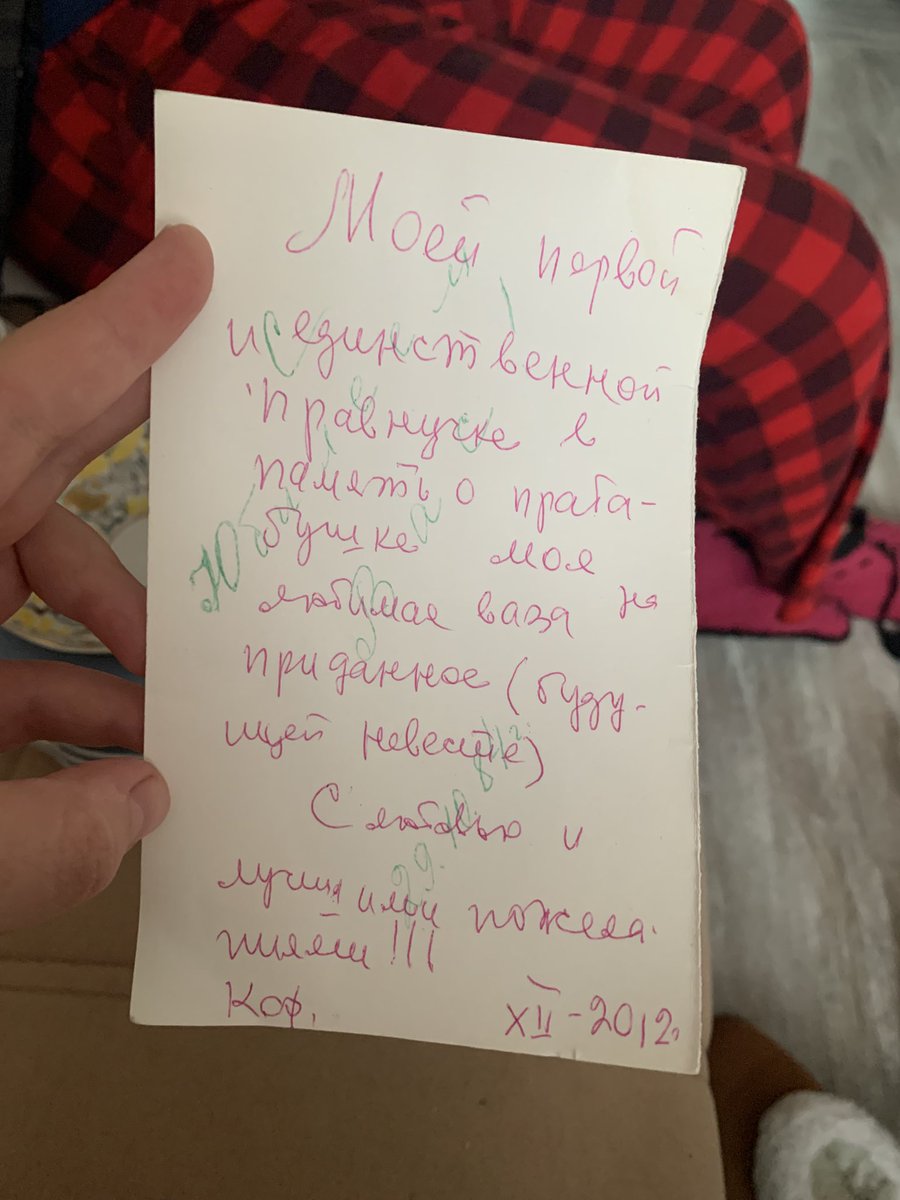 Моей первой
и единственной
правнучке в
память о праба-
бушке моя
любимая ваза на
приданное (буду-
щей невесте)
С любовью и
лучшими пожела-
ниями!!!
XII-2012г